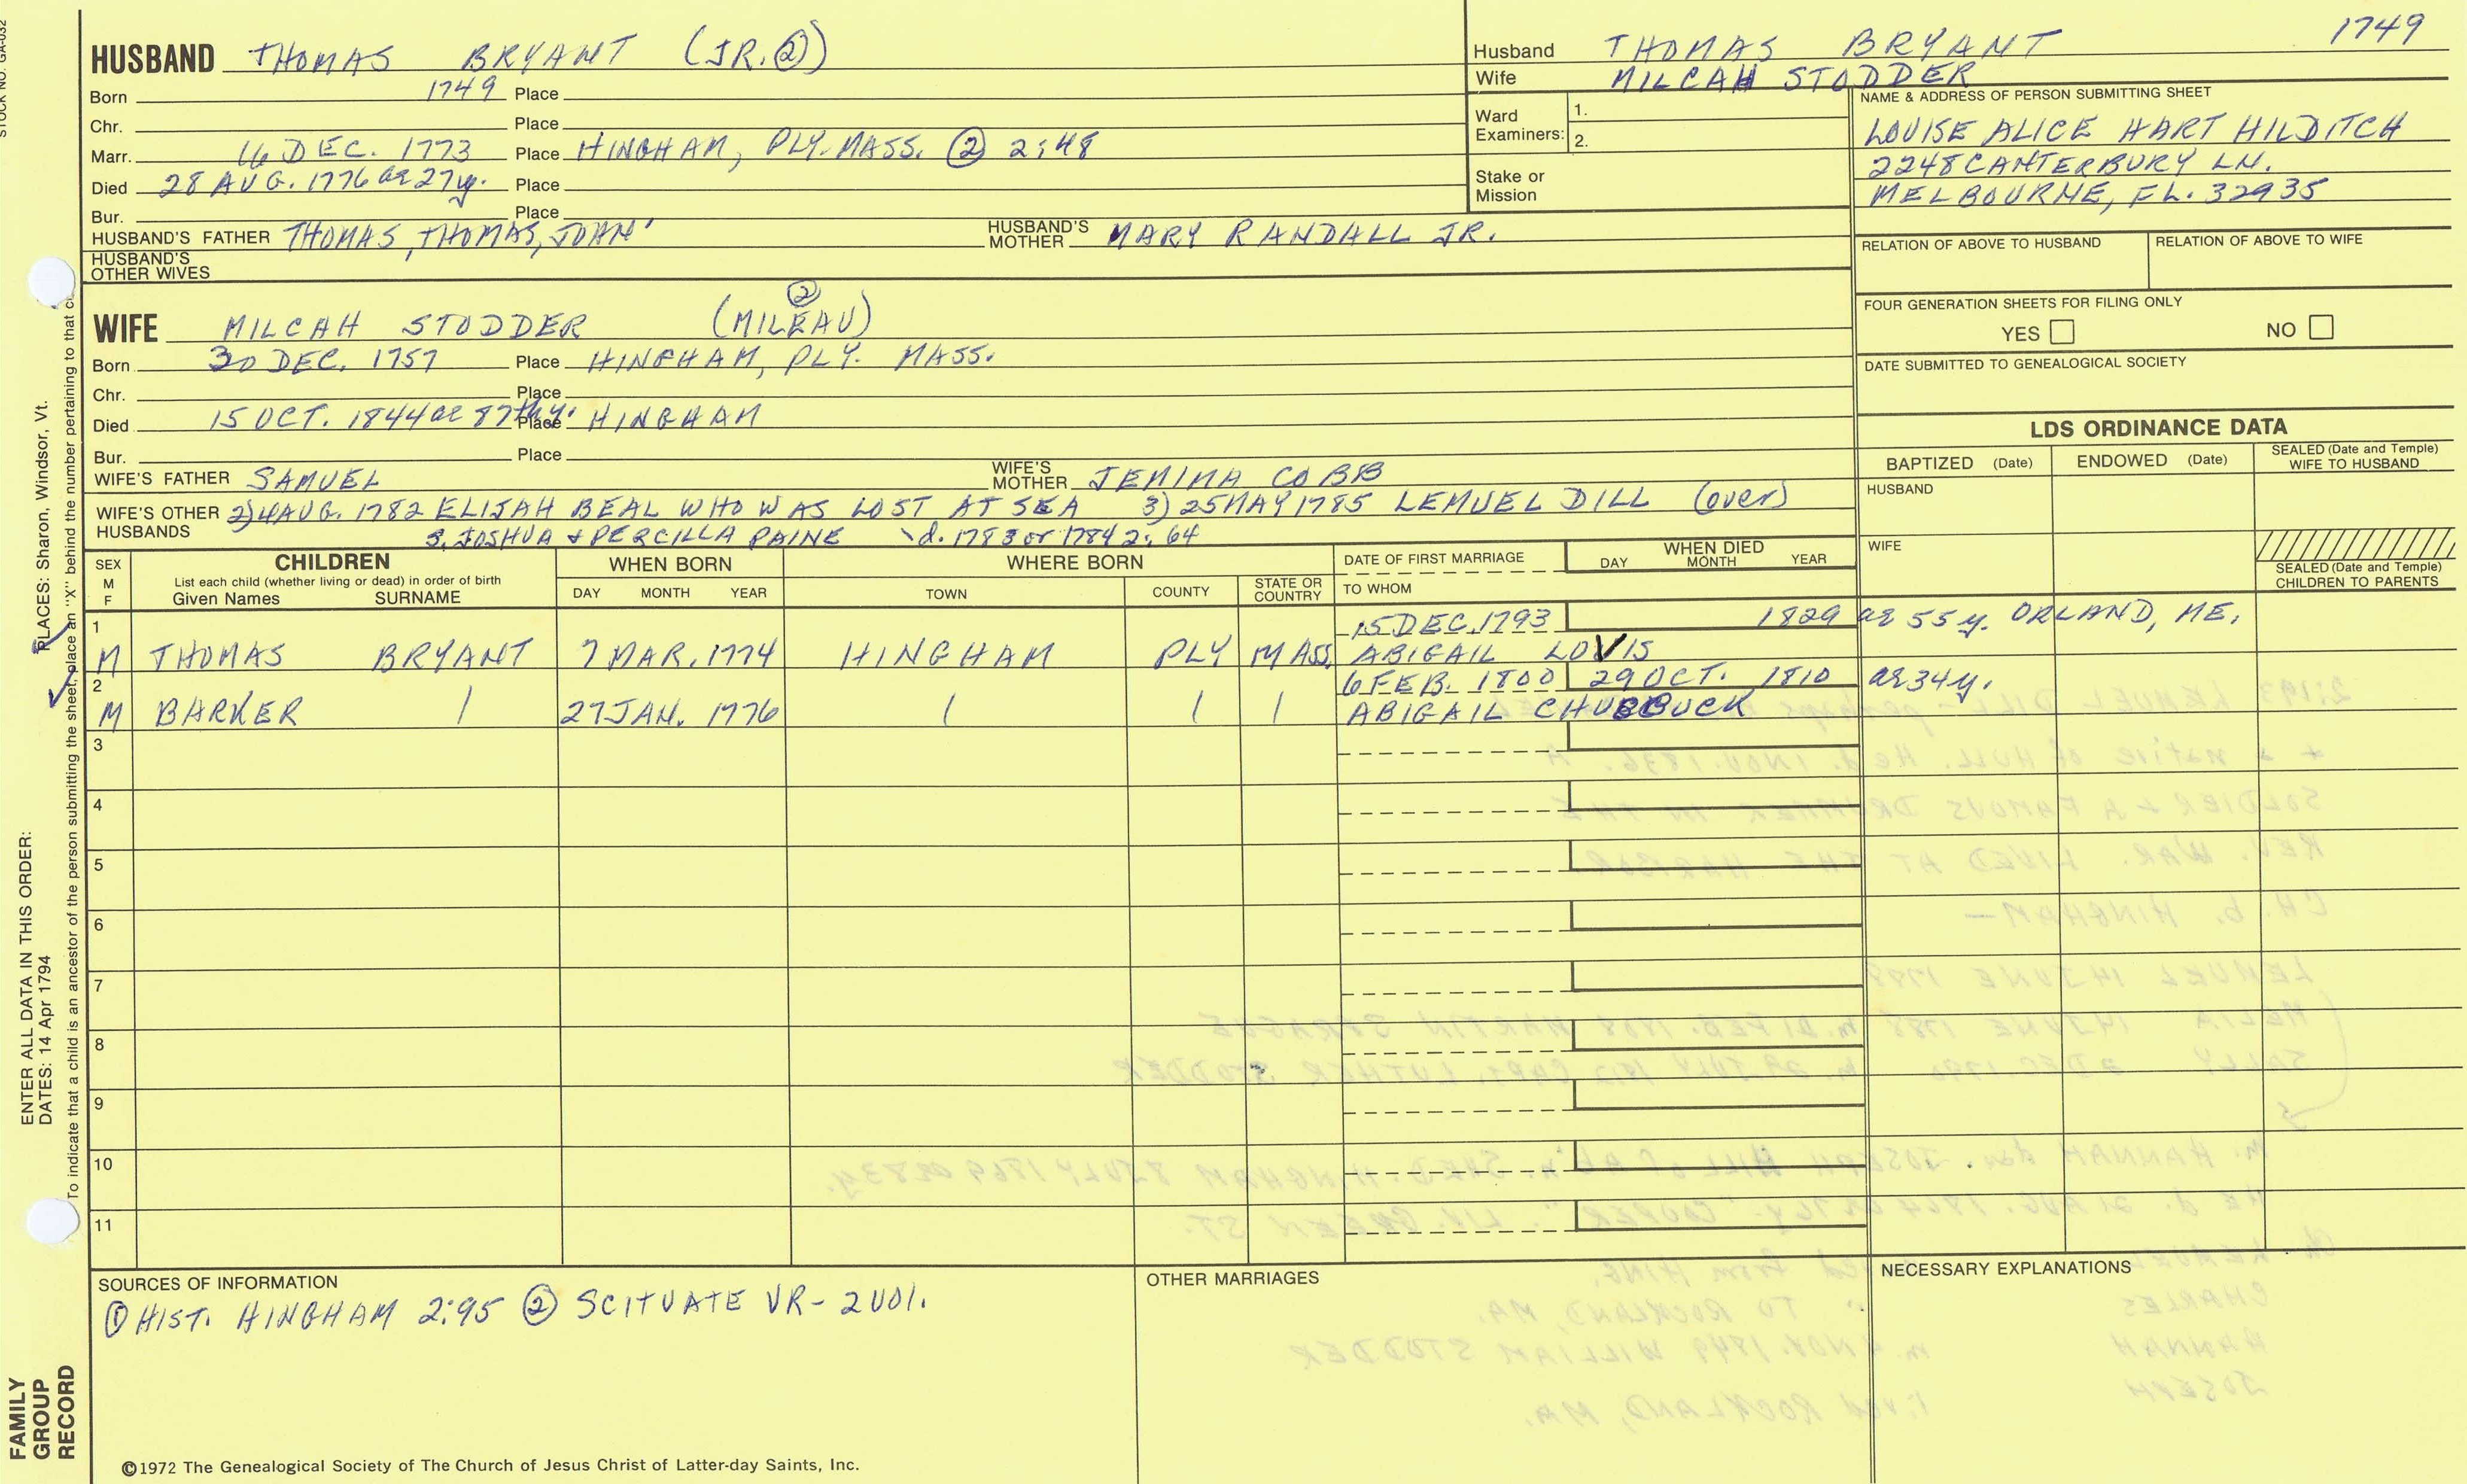 STOCK NO. GA-032
HUSBAND THOMAS BRYANT (JR. ②)
Born 1749 Place
Chr. Place
Marr. 16 DEC. 1773 Place HINGHAM, PLY. MASS. ② 2:48
Died 28 AUG. 1776 ae 27y. Place
Bur. Place
HUSBAND'S FATHER THOMAS, THOMAS, JOHN' HUSBAND'S MOTHER MARY RANDALL JR.
HUSBAND'S OTHER WIVES
Husband THOMAS BRYANT 1749
Wife MILCAH STODDER
Ward Examiners: 1.
2.
Stake or Mission
NAME & ADDRESS OF PERSON SUBMITTING SHEET
LOUISE ALICE HART HILDITCH
2248 CANTERBURY LN.
MELBOURNE, FL. 32935
RELATION OF ABOVE TO HUSBAND RELATION OF ABOVE TO WIFE
FOUR GENERATION SHEETS FOR FILING ONLY
YES NO
DATE SUBMITTED TO GENEALOGICAL SOCIETY
WIFE MILCAH STODDER (MILEAU) ②
Born 30 DEC. 1757 Place HINGHAM, PLY. MASS.
Chr. Place
Died 15 OCT. 1844 ae 87thy. Place HINGHAM
Bur. Place
WIFE'S FATHER SAMUEL WIFE'S MOTHER JEMIMA COBB
WIFE'S OTHER HUSBANDS 2) 4 AUG. 1782 ELIJAH BEAL WHO WAS LOST AT SEA 3) 25 MAY 1785 LEMUEL DILL (over)
S. JOSHUA + PERCILLA PAINE d. 1783 or 1784 2:64
LDS ORDINANCE DATA
BAPTIZED (Date) ENDOWED (Date) SEALED (Date and Temple) WIFE TO HUSBAND
HUSBAND
WIFE
SEALED (Date and Temple) CHILDREN TO PARENTS
SEX M F CHILDREN List each child (whether living or dead) in order of birth Given Names SURNAME
WHEN BORN DAY MONTH YEAR
WHERE BORN TOWN COUNTY STATE OR COUNTRY
DATE OF FIRST MARRIAGE TO WHOM
WHEN DIED DAY MONTH YEAR
1 15 DEC. 1793 1829 ae 55 y. ORLAND, ME.
M THOMAS BRYANT 7 MAR. 1774 HINGHAM PLY MASS. ABIGAIL LOVIS
2 6 FEB. 1800 29 OCT. 1810 ae 34y.
M BARKER / 27 JAN. 1776 / / / ABIGAIL CHUBBUCK
3
4
5
6
7
8
9
10
11
SOURCES OF INFORMATION
① HIST. HINGHAM 2:95 ② SCITUATE VR - 2 VOL.
OTHER MARRIAGES
NECESSARY EXPLANATIONS
©1972 The Genealogical Society of The Church of Jesus Christ of Latter-day Saints, Inc.
ENTER ALL DATA IN THIS ORDER:
DATES: 14 Apr 1794
PLACES: Sharon, Windsor, Vt.
To indicate that a child is an ancestor of the person submitting the sheet, place an "X" behind the number pertaining to that
FAMILY
GROUP
RECORD